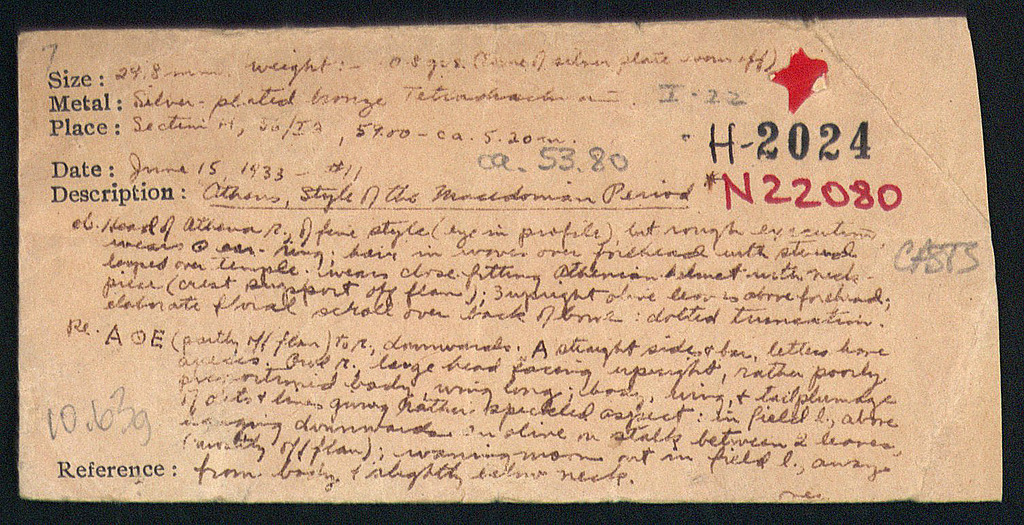 7
Size : 24.8 mm. weight :- (some of silver plate worn off)
Metal : Silver-plated bronze Tetradrachm I-22
Place : Section H, 56/ΙΣ, 59.00 - ca. 5.20 m.
H-2024
ca. 53.80
Date : June 15, 1933 - #11
Description : Athens, Style of the Macedonian Period
*N22080
ob. Head of Athena r., of fine style (eye in profile) but rough execution,
wears ear-ring; hair in waves over forehead with strand
looped over temple. Wears close-fitting Athenian helmet with neck-
CASTS
piece (crest support off flan); 3 upright olive leaves above forehead;
elaborate floral scroll over back of : dotted truncation.
Re. ΑΘΕ (partly off flan) to r., downwards. A straight side & bar, letters have
apices. Owl r., large head facing upright, rather poorly
proportioned body, wing long; body, wing & tail plumage
of dots & lines giving rather speckled aspect : in field l., above
10.63g
downwards an olive on stalk between 2 leaves,
(mostly off flan); waning moon out in field l., away
Reference : from body & slightly below neck.